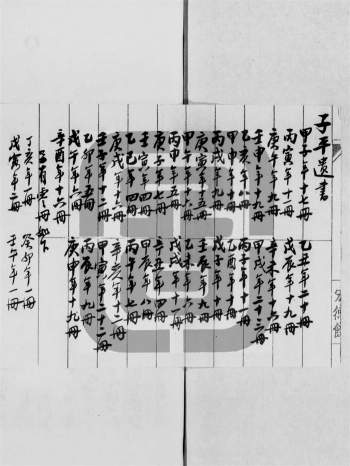 子平遺書
甲子年十七冊 乙丑年二十冊
丙寅年十一冊 戊辰年十九冊
庚午年九冊 辛未年十六冊
壬申年十九冊 甲戌年二十三冊
乙亥年八冊 丙子年十一冊
甲申年十冊 乙酉年十冊
丙戌年九冊 戊子年十冊
庚寅年五冊 壬辰年九冊
甲午年十六冊 乙未年六冊
丙申年五冊 戊戌年十一冊
庚子年七冊 辛丑年四冊
壬寅年四冊 甲辰年八冊
乙巳年四冊 丙午年七冊
庚戌年六冊 辛亥年十二冊
壬子年十二冊 甲寅年二十二冊
乙卯年五冊 丙辰年九冊
戊午年六冊 庚申年十九冊
辛酉年十六冊
又有零冊如下
丁亥年一冊 癸卯年一冊
戊寅年二冊 壬午年一冊